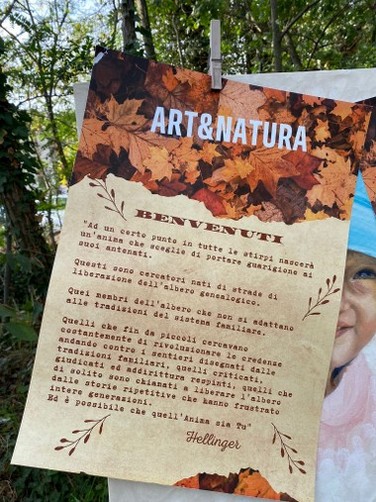 ART&NATURA
BENVENUTI
"Ad un certo punto in tutte le stirpi nascerà
un'anima che sceglie di portare guarigione ai
suoi antenati.
Questi sono cercatori nati di strade di
liberazione dell'albero genealogico.
Quei membri dell'albero che non si adattano
alle tradizioni del sistema familiare.
Quelli che fin da piccoli cercavano
costantemente di rivoluzionare le credenze
andando contro i sentieri disegnati dalle
tradizioni familiari, quelli criticati,
giudicati ed addirittura respinti, quelli che
di solito sono chiamati a liberare l'albero
dalle storie ripetitive che hanno frustrato
intere generazioni.
Ed è possibile che quell'Anima sia Tu"
Hellinger